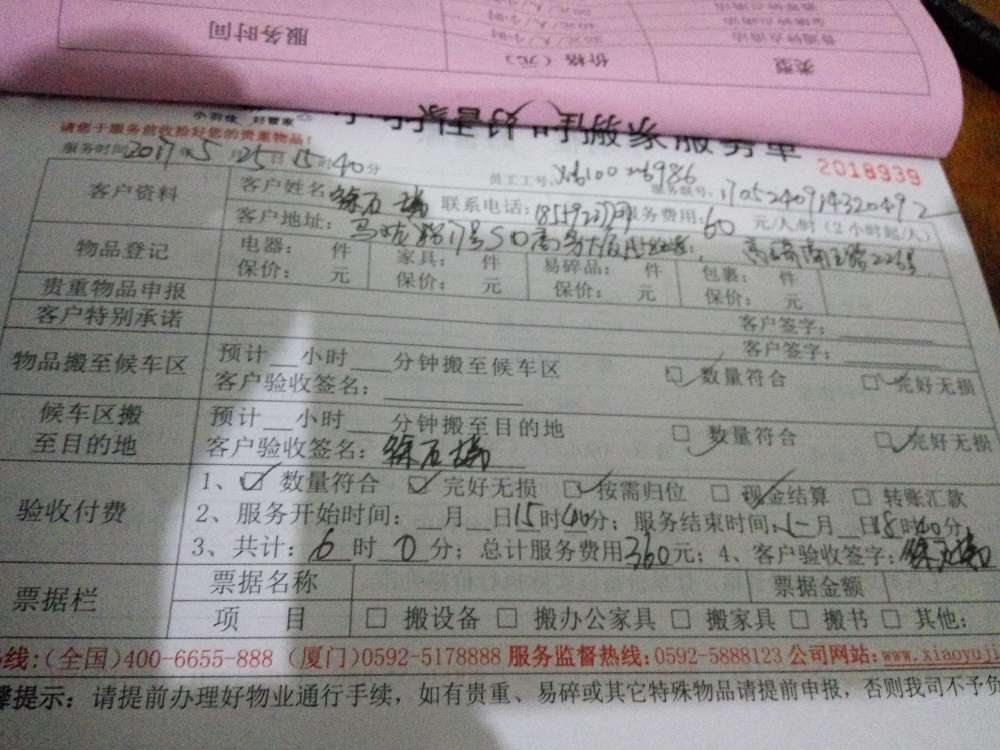 服务时间
价格（元）
类型
小羽佳 好管家
搬家服务单
请您于服务前收拾好您的贵重物品！
2018939
服务时间2017年5月25日15时40分
员工工号：
服务账号：
客户资料
客户姓名 联系电话： 服务费用：60元/人/时（2小时起/人）
客户地址：
物品登记
电器： 件 家具： 件 易碎品： 件 包裹： 件
保价： 元 保价： 元 保价： 元 保价： 元
贵重物品申报
客户签字：
客户特别承诺
客户签字：
物品搬至候车区
预计__小时___分钟搬至候车区
客户验收签名： □ 数量符合 □ 完好无损
候车区搬至目的地
预计__小时___分钟搬至目的地
客户验收签名： □ 数量符合 □ 完好无损
验收付费
1、☑ 数量符合 ☑ 完好无损 ☑ 按需归位 □ 现金结算 □ 转账汇款
2、服务开始时间：__月__日15时40分；服务结束时间： 月__日18时40分
3、共计：6时0分；总计服务费用360元；4、客户验收签字：
票据栏
票据名称 票据金额
项 目 □ 搬设备 □ 搬办公家具 □ 搬家具 □ 搬书 □ 其他：
线:(全国)400-6655-888 (厦门)0592-5178888 服务监督热线:0592-5888123 公司网站:www.xiaoyuji
提示：请提前办理好物业通行手续，如有贵重、易碎或其它特殊物品请提前申报，否则我司不予负